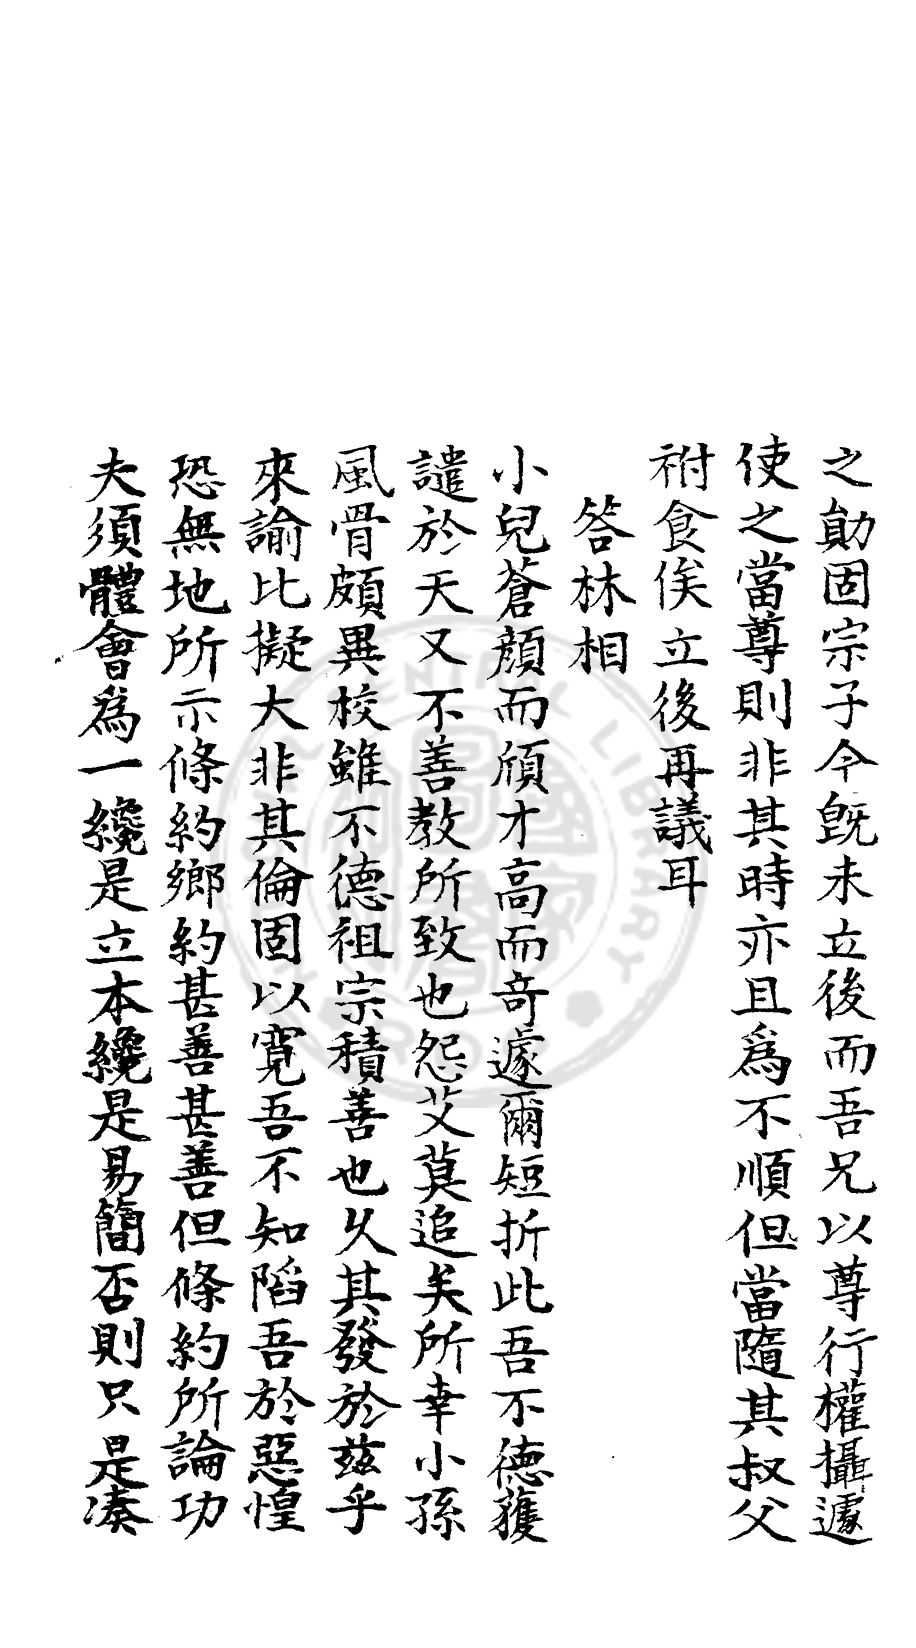 之勛固宗子今旣未立後而吾兄以尊行權攝遽
使之當尊則非其時亦且爲不順但當隨其叔父
祔食俟立後再議耳
答林相
小兒蒼顏而頎才高而竒遽爾短折此吾不德獲
譴於天又不善教所致也怨艾莫追矣所幸小孫
風骨頗異校雖不德祖宗積善也乆其發於兹乎
來諭比擬大非其倫固以寬吾不知陷吾於惡惶
恐無地所示條約鄉約甚善甚善但條約所論功
夫須體會爲一纔是立本纔是易簡否則只是凑
CENTRAL LIBRARY